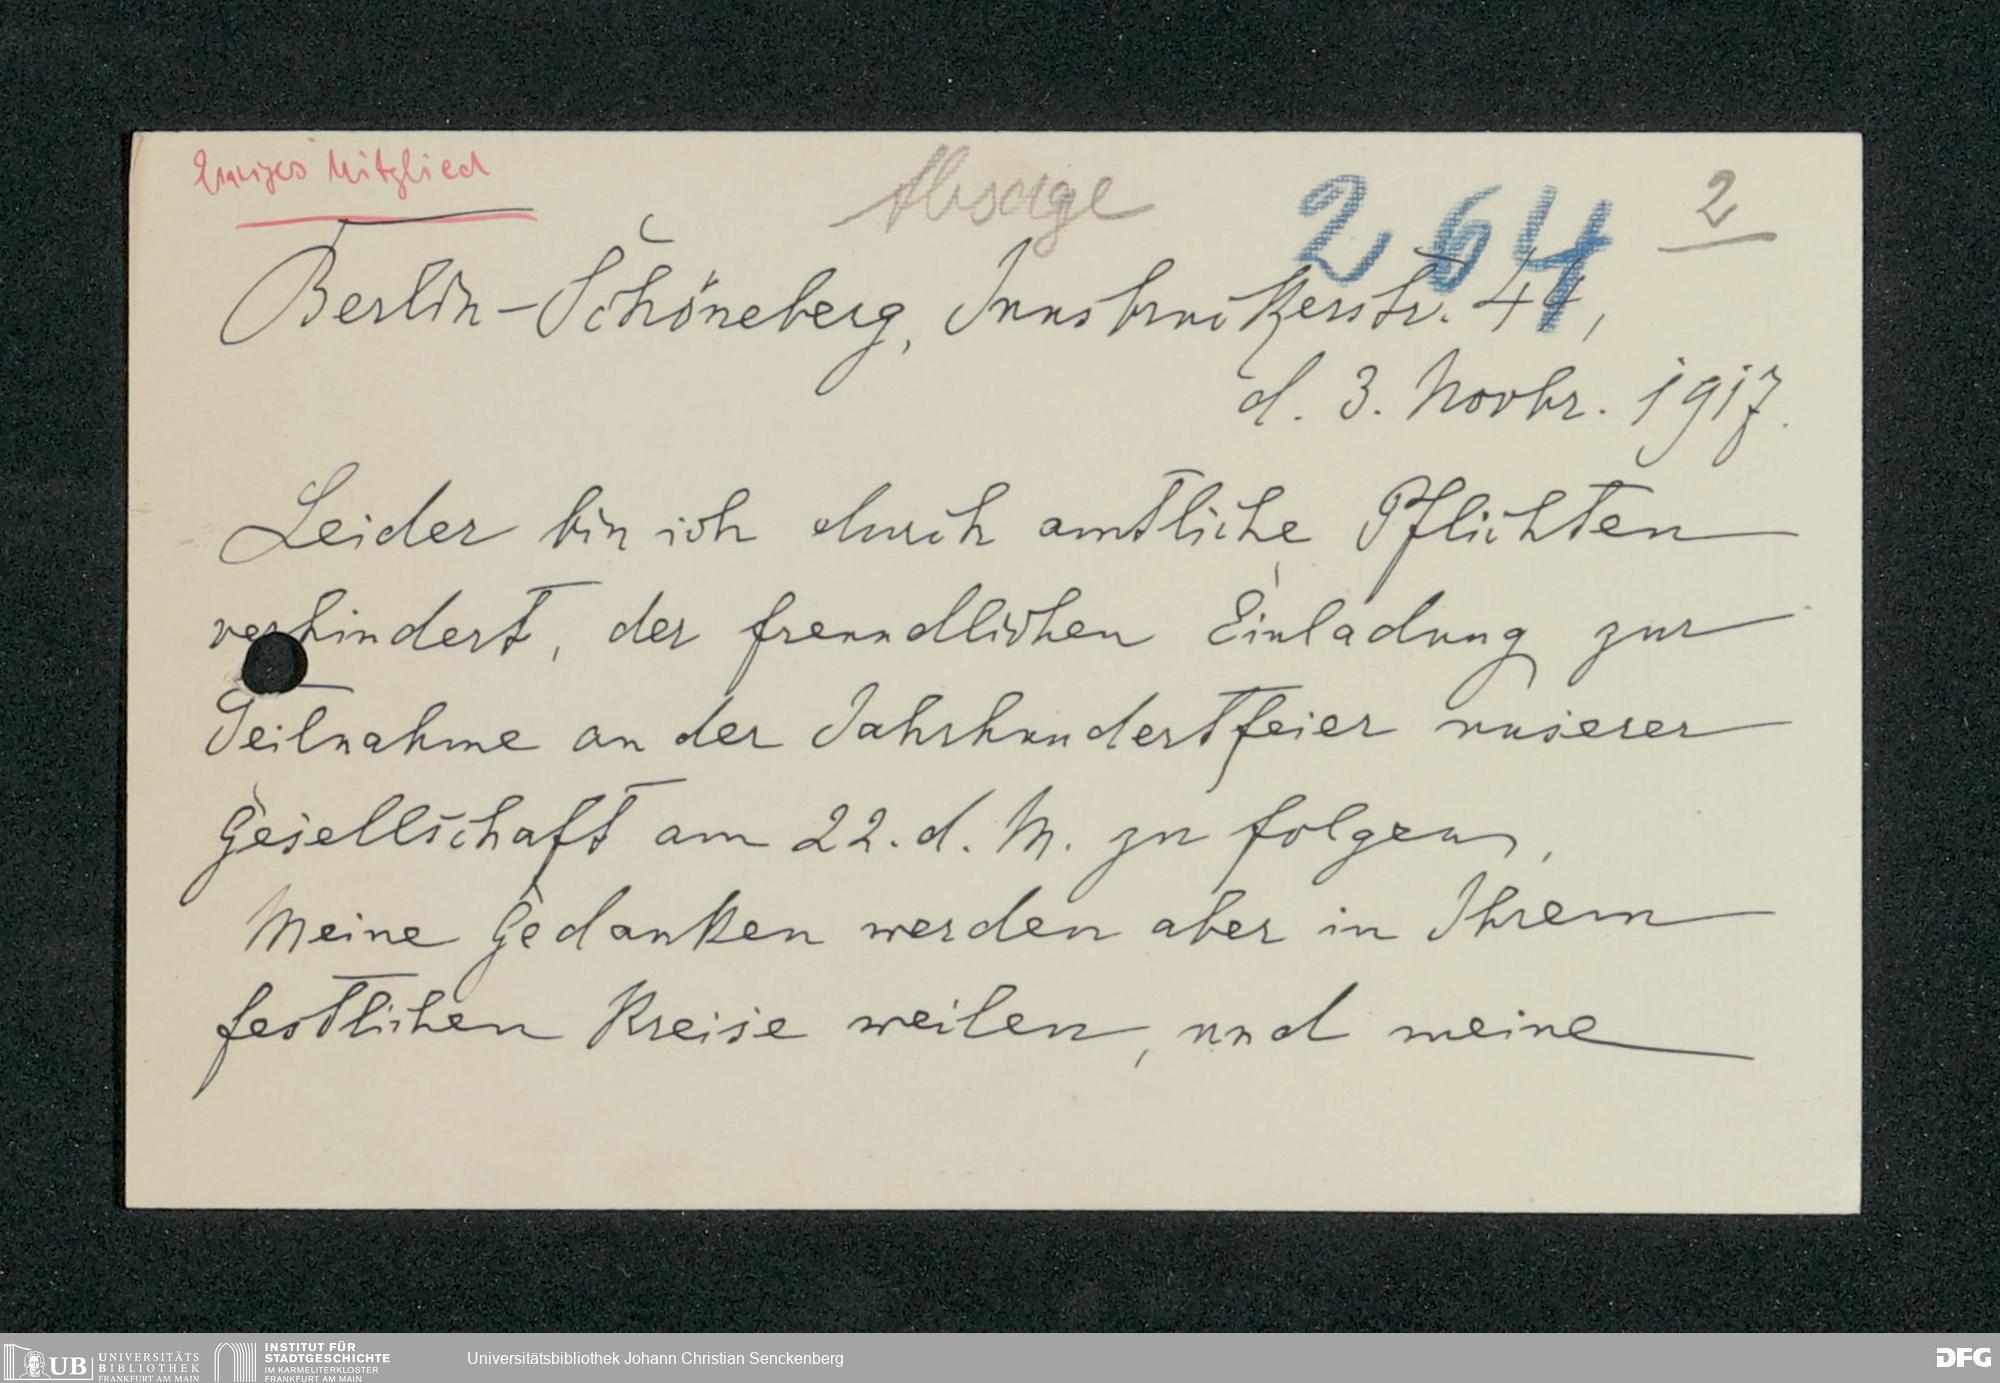 Ewiges Mitglied
Absage
264
2
Berlin-Schöneberg, Innsbruckerstr. 44,
d. 3. Novbr. 1917.
Leider bin ich durch amtliche Pflichten
verhindert, der freundlichen Einladung zur
Teilnahme an der Jahrhundertfeier unserer
Gesellschaft am 22. d. M. zu folgen.
Meine Gedanken werden aber in Ihrem
festlichen Kreise weilen, und meine
UB UNIVERSITÄTS BIBLIOTHEK FRANKFURT AM MAIN
INSTITUT FÜR STADTGESCHICHTE IM KARMELITERKLOSTER FRANKFURT AM MAIN
Universitätsbibliothek Johann Christian Senckenberg
DFG